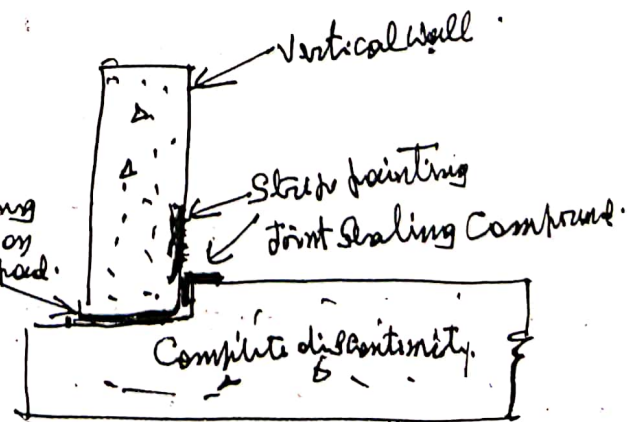 Vertical Wall.
Strip painting
Joint Sealing Compound.
ng
on
pad.
Complete discontinuity.